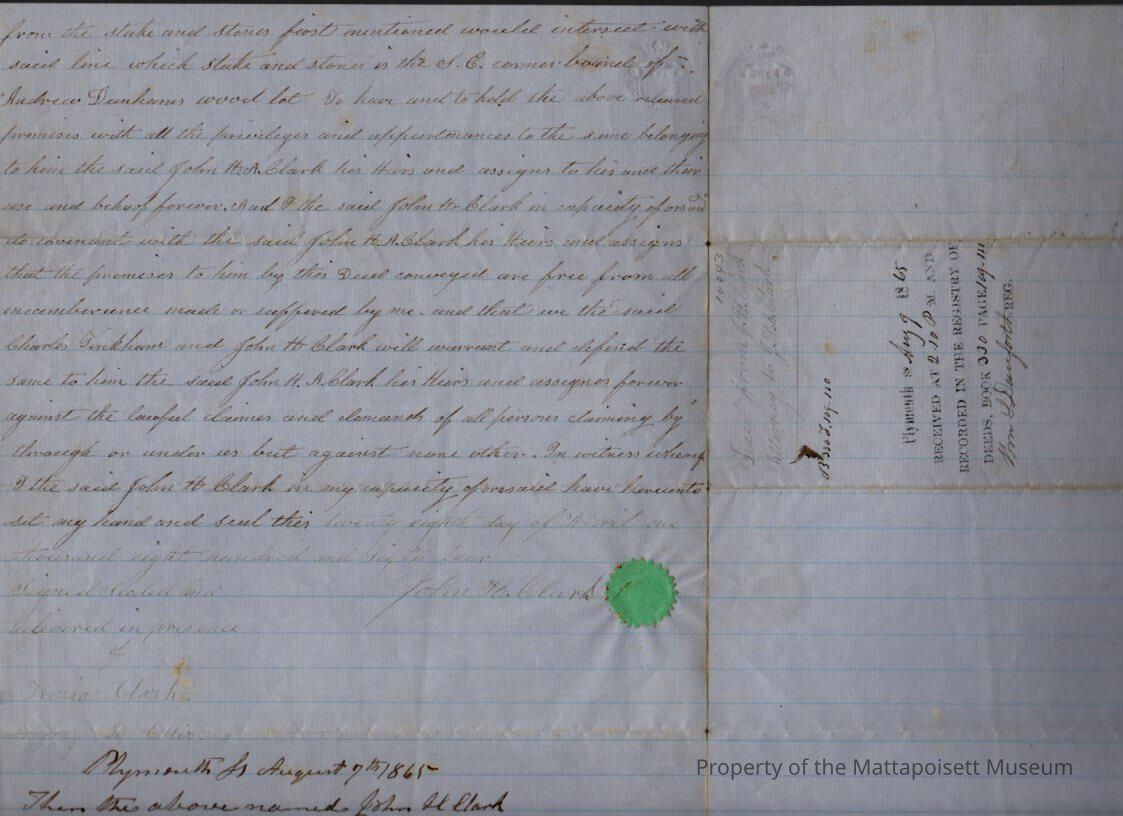 from the stake and stones first mentioned would intersect with
said line which stake and stones is the S. E. corner bound of
Andrew Dunhams wood lot To have and to hold the above released
premises with all the priviledges and appurtenances to the same belonging
to him the said John H. A. Clark his Heirs and assigns to his and their
use and behoof forever. And I the said John H Clark in capacity aforesaid
do covenant with the said John H. A. Clark his Heirs and assigns
that the premises to him by this Deed conveyed are free from all
incumberance made or suffered by me. and that we the said
Charles Tinkham and John H Clark will warrant and defend the
same to him the said John H. A. Clark his Heirs and assignes forever
against the lawful claimes and demands of all persons claiming by
through or under us but against none other. In witness whereof
I the said John H Clark in my capacity aforesaid have hereunto
set my hand and seal this twenty eighth day of April one
thousand eight hundred and sixty four
Signed Sealed and
delivered in presence
of
John H. Clark
Clark
Plymouth Ss August 7th 1865
Then the above named John H Clark
10043
Deed from
Attorney to
B 330 P. 109. 110
Plymouth ss Aug 9 1865
RECEIVED AT 2 10 P M. AND
RECORDED IN THE REGISTRY OF
DEEDS, BOOK 330 PAGE 109-110
Wm S Danforth REG.
Property of the Mattapoisett Museum